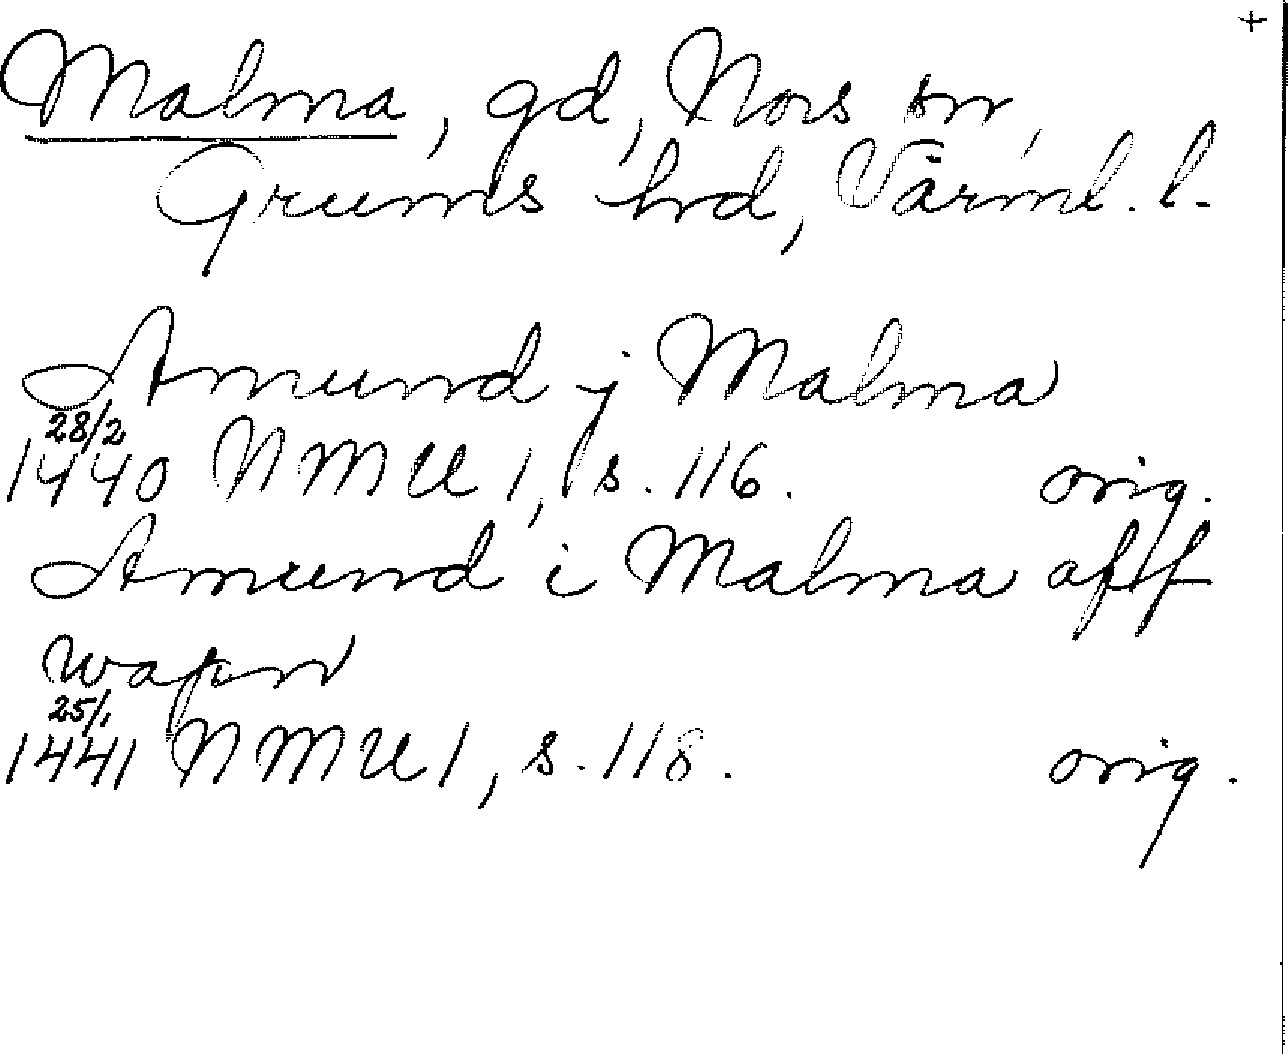 +
Malma, gd, Nors sn,
Grums hrd, Värml. l.
Amund j Malma
28/2
1440 NMU 1, s. 116. orig.
Amund i Malma aff
wapn
25/1
1441 NMU 1, s. 118. orig.